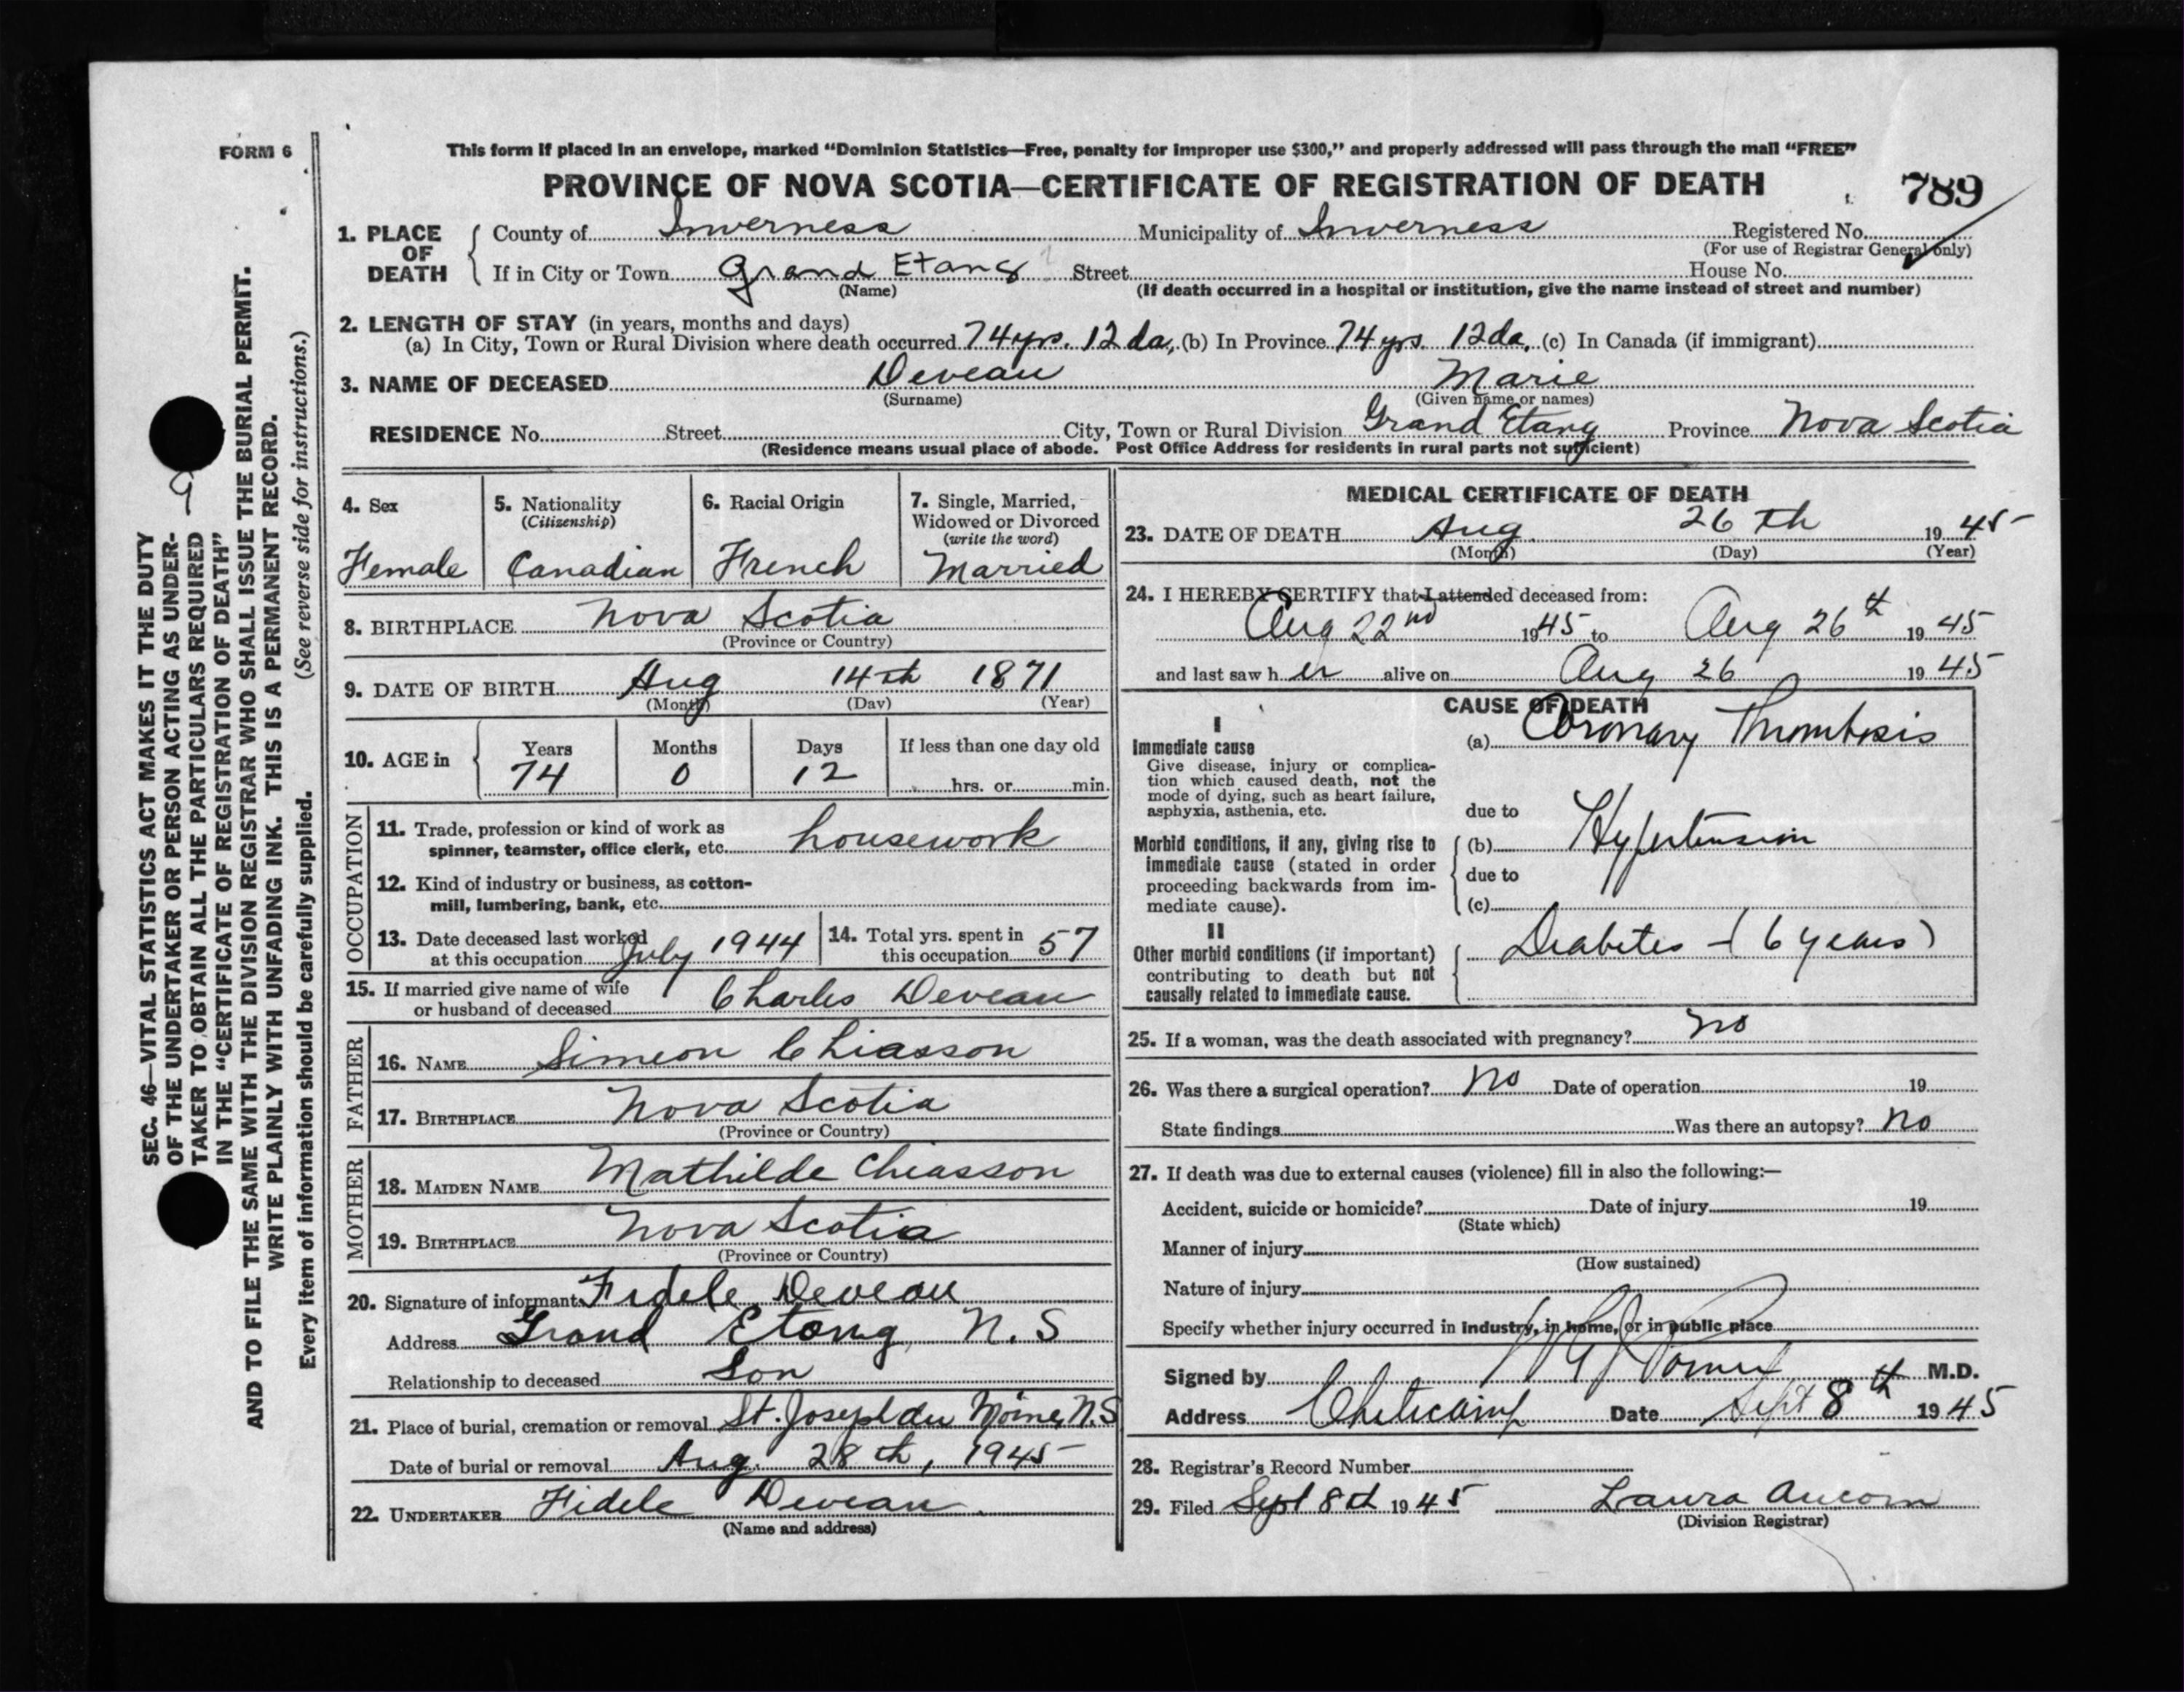 FORM 6
This form if placed in an envelope, marked “Dominion Statistics—Free, penalty for improper use $300,” and properly addressed will pass through the mail “FREE”
PROVINCE OF NOVA SCOTIA—CERTIFICATE OF REGISTRATION OF DEATH 789
1. PLACE OF DEATH County of Inverness Municipality of Inverness Registered No.
(For use of Registrar General only)
If in City or Town Grand Etang Street House No.
(Name) (If death occurred in a hospital or institution, give the name instead of street and number)
2. LENGTH OF STAY (in years, months and days)
(a) In City, Town or Rural Division where death occurred 74 yrs. 12 da, (b) In Province 74 yrs 12 da, (c) In Canada (if immigrant)
3. NAME OF DECEASED Deveau Marie
(Surname) (Given name or names)
RESIDENCE No. Street City, Town or Rural Division Grand Etang Province Nova Scotia
(Residence means usual place of abode. Post Office Address for residents in rural parts not sufficient)
4. Sex 5. Nationality (Citizenship) 6. Racial Origin 7. Single, Married, Widowed or Divorced (write the word)
Female Canadian French Married
8. BIRTHPLACE Nova Scotia
(Province or Country)
9. DATE OF BIRTH Aug 14th 1871
(Month) (Day) (Year)
10. AGE in Years Months Days If less than one day old
74 0 12 hrs. or min.
OCCUPATION
11. Trade, profession or kind of work as
spinner, teamster, office clerk, etc. housework
12. Kind of industry or business, as cotton-
mill, lumbering, bank, etc.
13. Date deceased last worked
at this occupation July 1944
14. Total yrs. spent in
this occupation 57
15. If married give name of wife
or husband of deceased Charles Deveau
FATHER
16. NAME Simeon Chiasson
17. BIRTHPLACE Nova Scotia
(Province or Country)
MOTHER
18. MAIDEN NAME Mathilde Chiasson
19. BIRTHPLACE Nova Scotia
(Province or Country)
20. Signature of informant Fidele Deveau
Address Grand Etang, N.S
Relationship to deceased Son
21. Place of burial, cremation or removal St. Joseph du Moine, N.S
Date of burial or removal Aug. 28th, 1945
22. UNDERTAKER Fidele Deveau.
(Name and address)
MEDICAL CERTIFICATE OF DEATH
23. DATE OF DEATH Aug. 26th 1945
(Month) (Day) (Year)
24. I HEREBY CERTIFY that I attended deceased from:
Aug 22nd 1945 to Aug 26th 1945
and last saw her alive on Aug 26 1945
CAUSE OF DEATH
I
Immediate cause
Give disease, injury or complica-
tion which caused death, not the
mode of dying, such as heart failure,
asphyxia, asthenia, etc.
(a) Coronary Thrombosis
due to
Morbid conditions, if any, giving rise to
immediate cause (stated in order
proceeding backwards from im-
mediate cause).
(b) Hypertension
due to
(c)
II
Other morbid conditions (if important)
contributing to death but not
causally related to immediate cause.
Diabetes - (6 years)
25. If a woman, was the death associated with pregnancy? no
26. Was there a surgical operation? no Date of operation 19
State findings Was there an autopsy? no
27. If death was due to external causes (violence) fill in also the following:—
Accident, suicide or homicide? Date of injury 19
(State which)
Manner of injury
(How sustained)
Nature of injury
Specify whether injury occurred in industry, in home, or in public place
Signed by M.D.
Address Cheticamp Date Sept 8th 1945
28. Registrar's Record Number
29. Filed Sept 8th 1945 Laura Aucoin
(Division Registrar)
SEC. 46—VITAL STATISTICS ACT MAKES IT THE DUTY
OF THE UNDERTAKER OR PERSON ACTING AS UNDER-
TAKER TO OBTAIN ALL THE PARTICULARS REQUIRED
IN THE “CERTIFICATE OF REGISTRATION OF DEATH”
AND TO FILE THE SAME WITH THE DIVISION REGISTRAR WHO SHALL ISSUE THE BURIAL PERMIT.
WRITE PLAINLY WITH UNFADING INK. THIS IS A PERMANENT RECORD.
Every item of information should be carefully supplied. (See reverse side for instructions.)
9